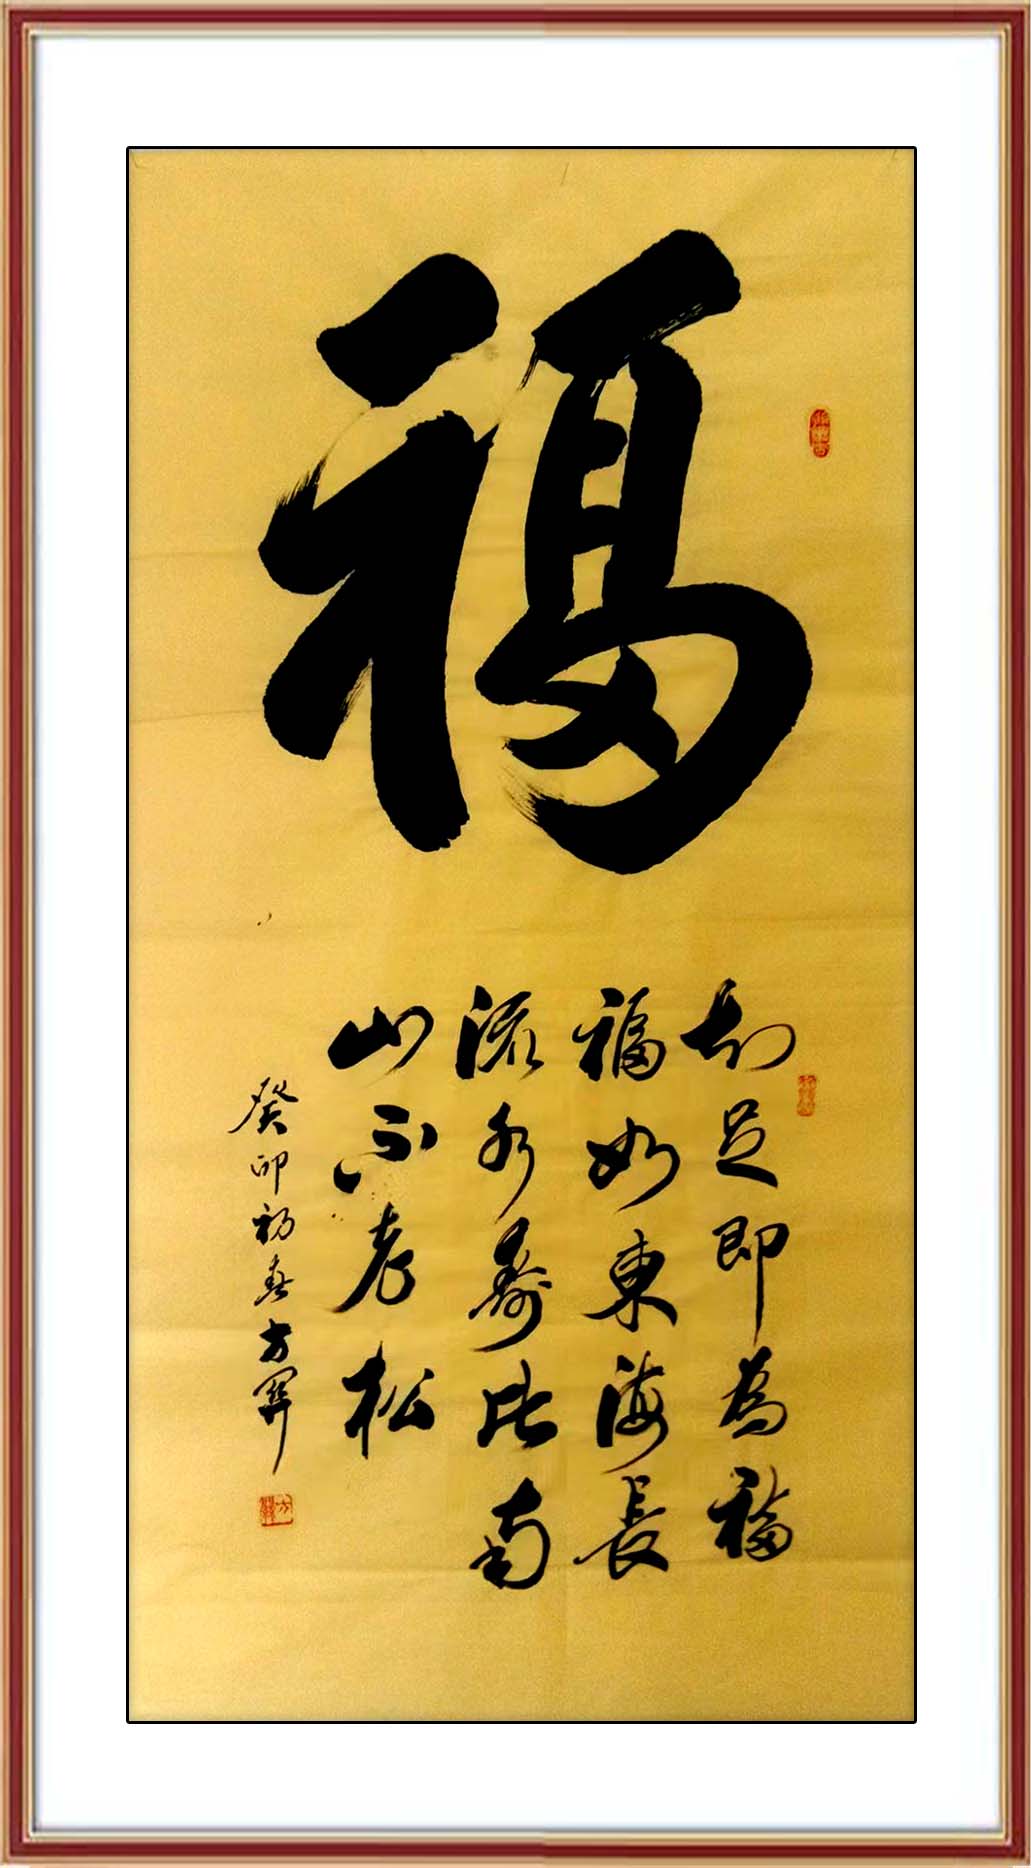 福
知足即為福
福如東海長
流水壽比南
山不老松
癸卯初春方